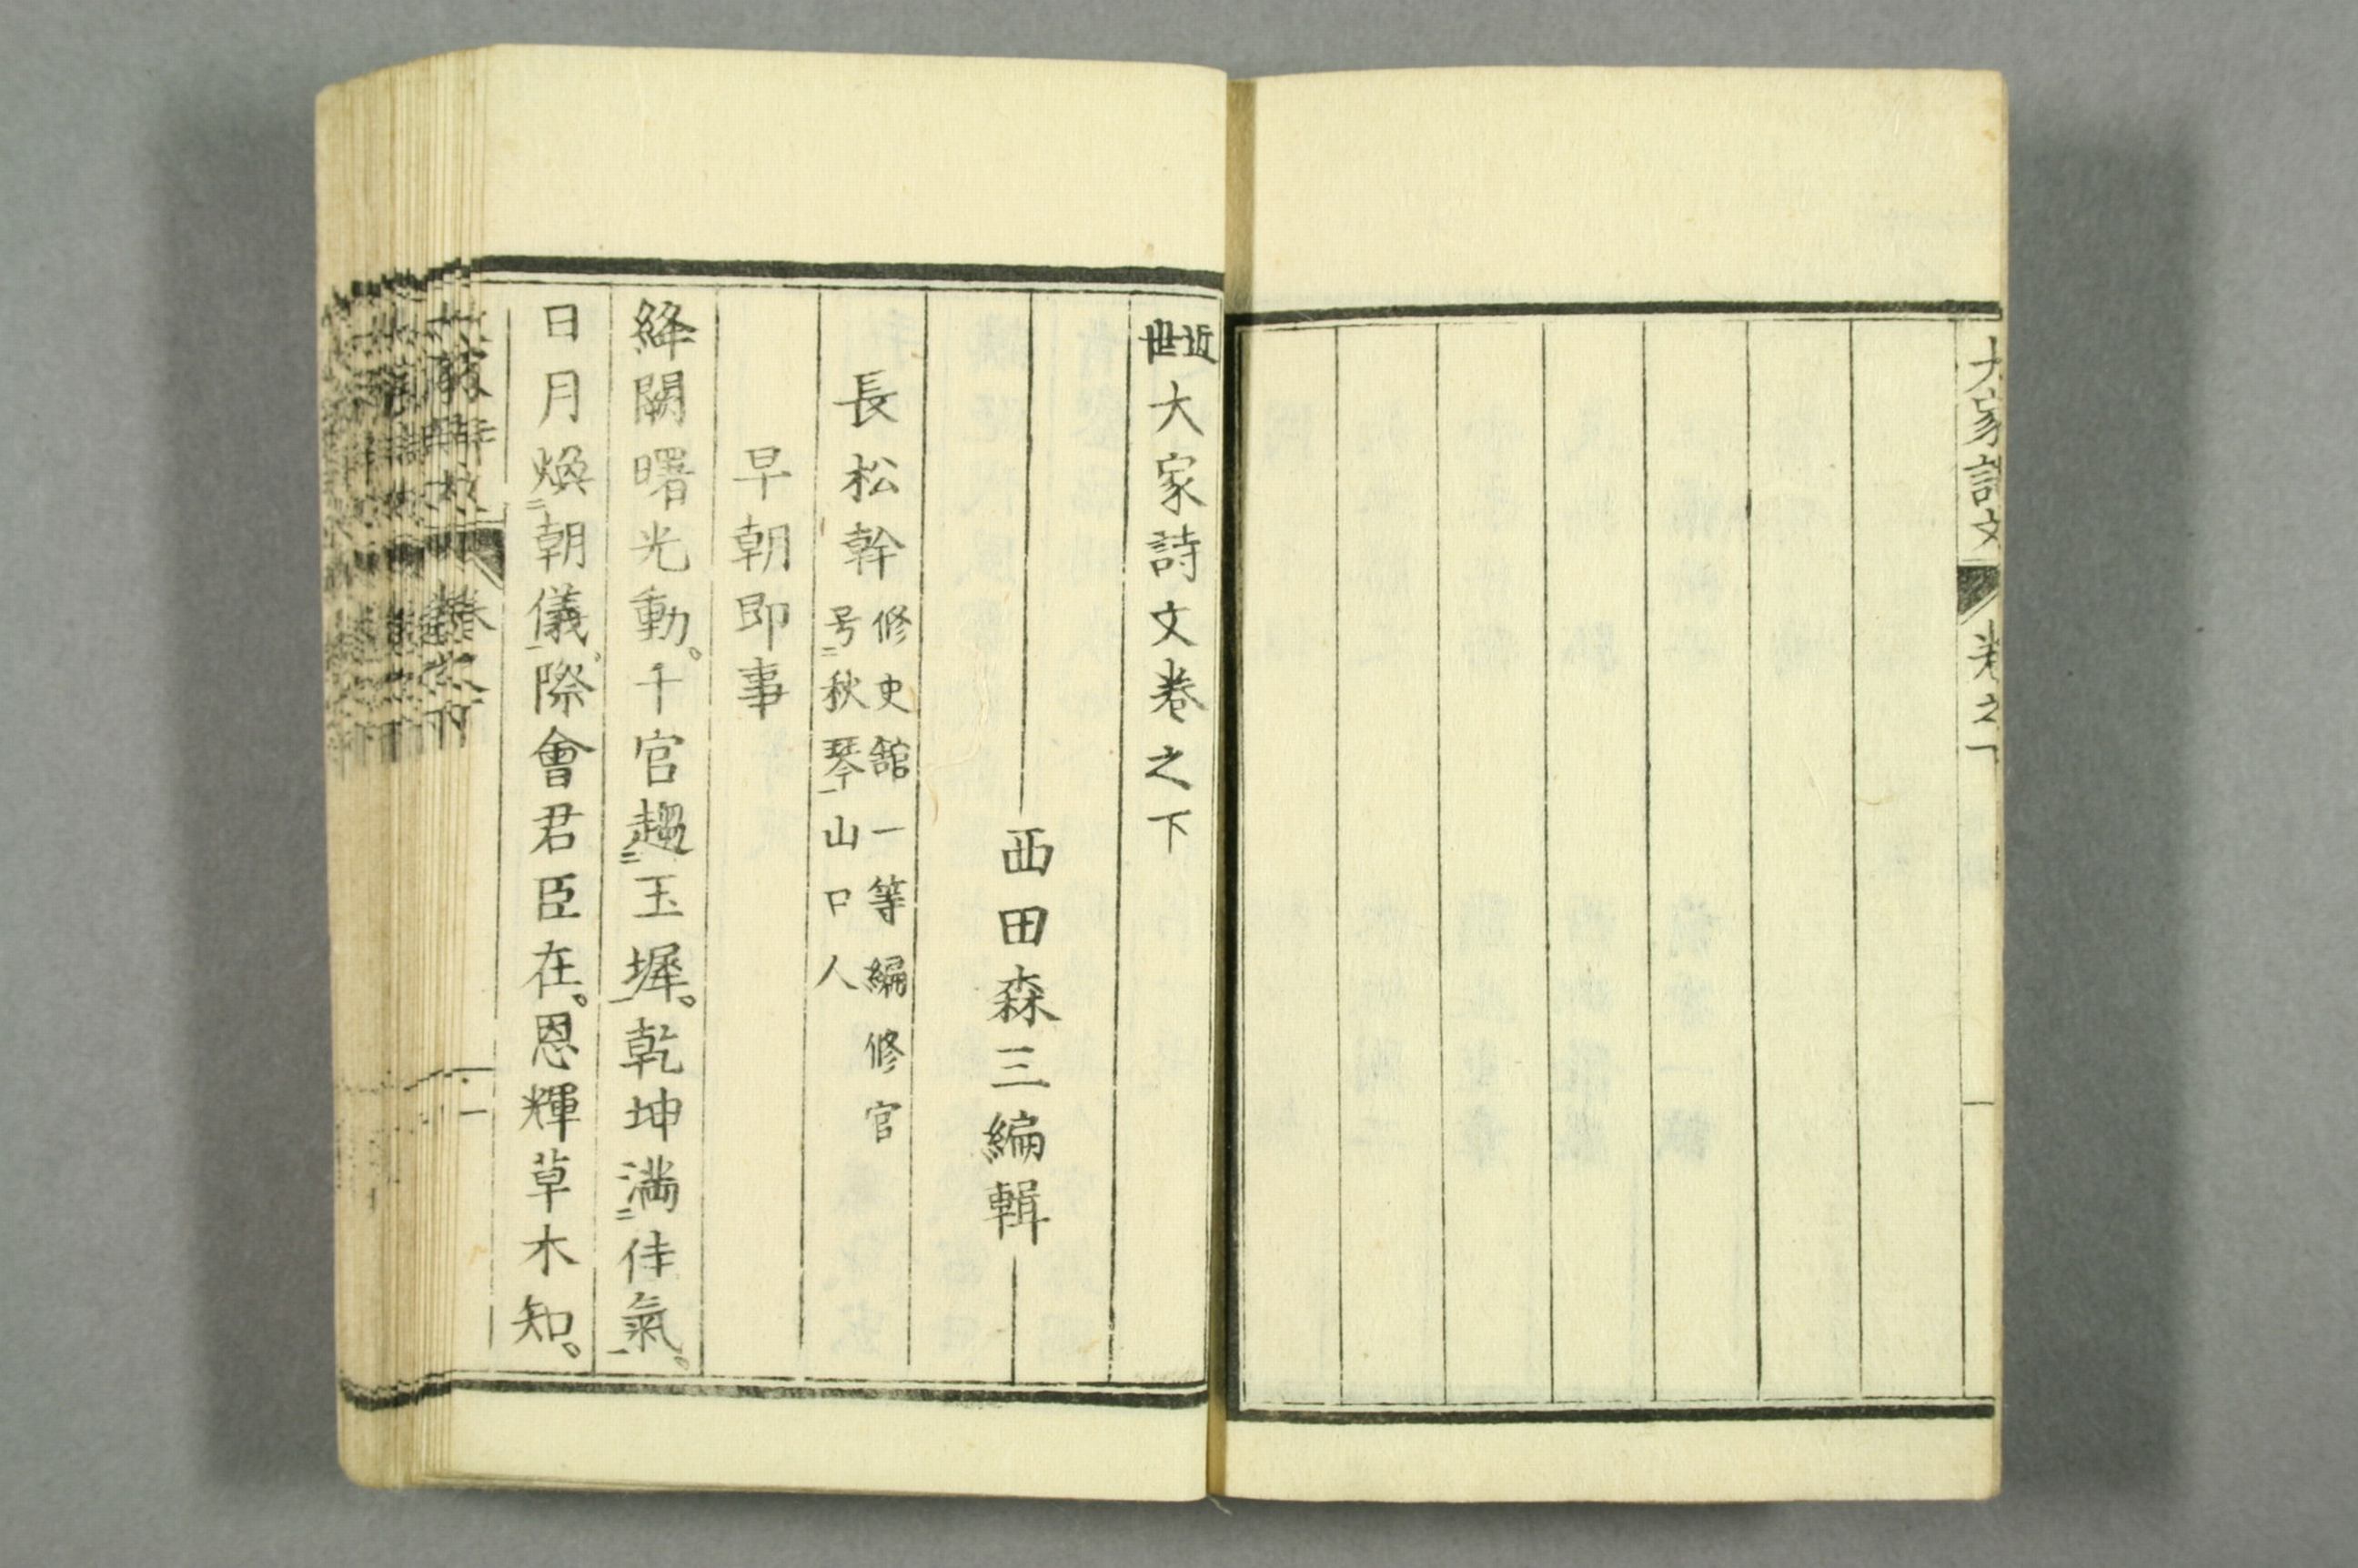 大家詩文 卷之下 一
近世大家詩文卷之下
西田森三編輯
長松幹 修史館一等編修官
号二秋琴一山口人
早朝即事
絳闕曙光動。千官趨二玉墀一。乾坤満二佳氣一。
日月煥二朝儀一。際會君臣在。恩輝草木知。
一